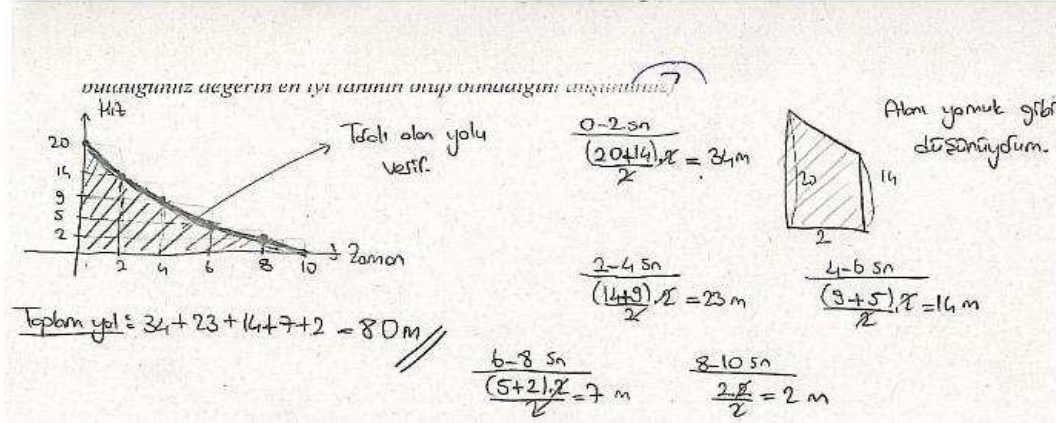 bulduğunuz değerin en iyi tahmin olup olmadığını düşününüz)
Hız
20
14
9
5
2
2 4 6 8 10
Zaman
Taralı alan yolu
verir.
Toplam yol = 34+23+14+7+2 = 80m
0-2 sn
(20+14).2/2 = 34m
20
14
2
Alanı yamuk gibi
düşünüydum.
2-4 sn
(14+9).2/2 = 23 m
4-6 sn
(9+5).2/2 = 14 m
6-8 sn
(5+2).2/2 = 7 m
8-10 sn
2.2/2 = 2 m